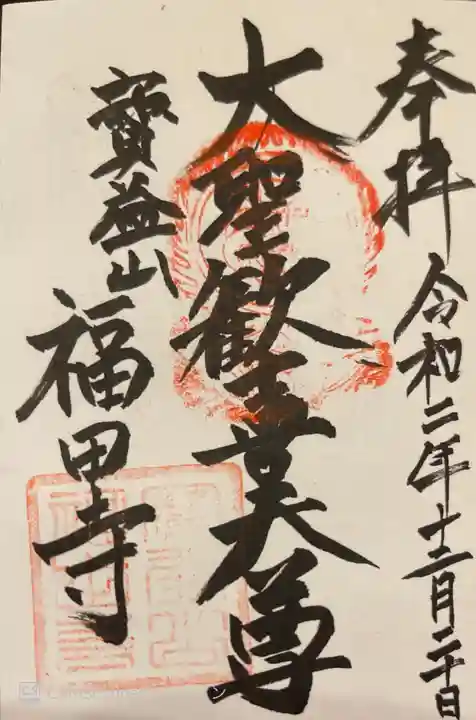 奉拝 令和二年十二月二十日
大聖歓喜天尊
寳益山
福田寺